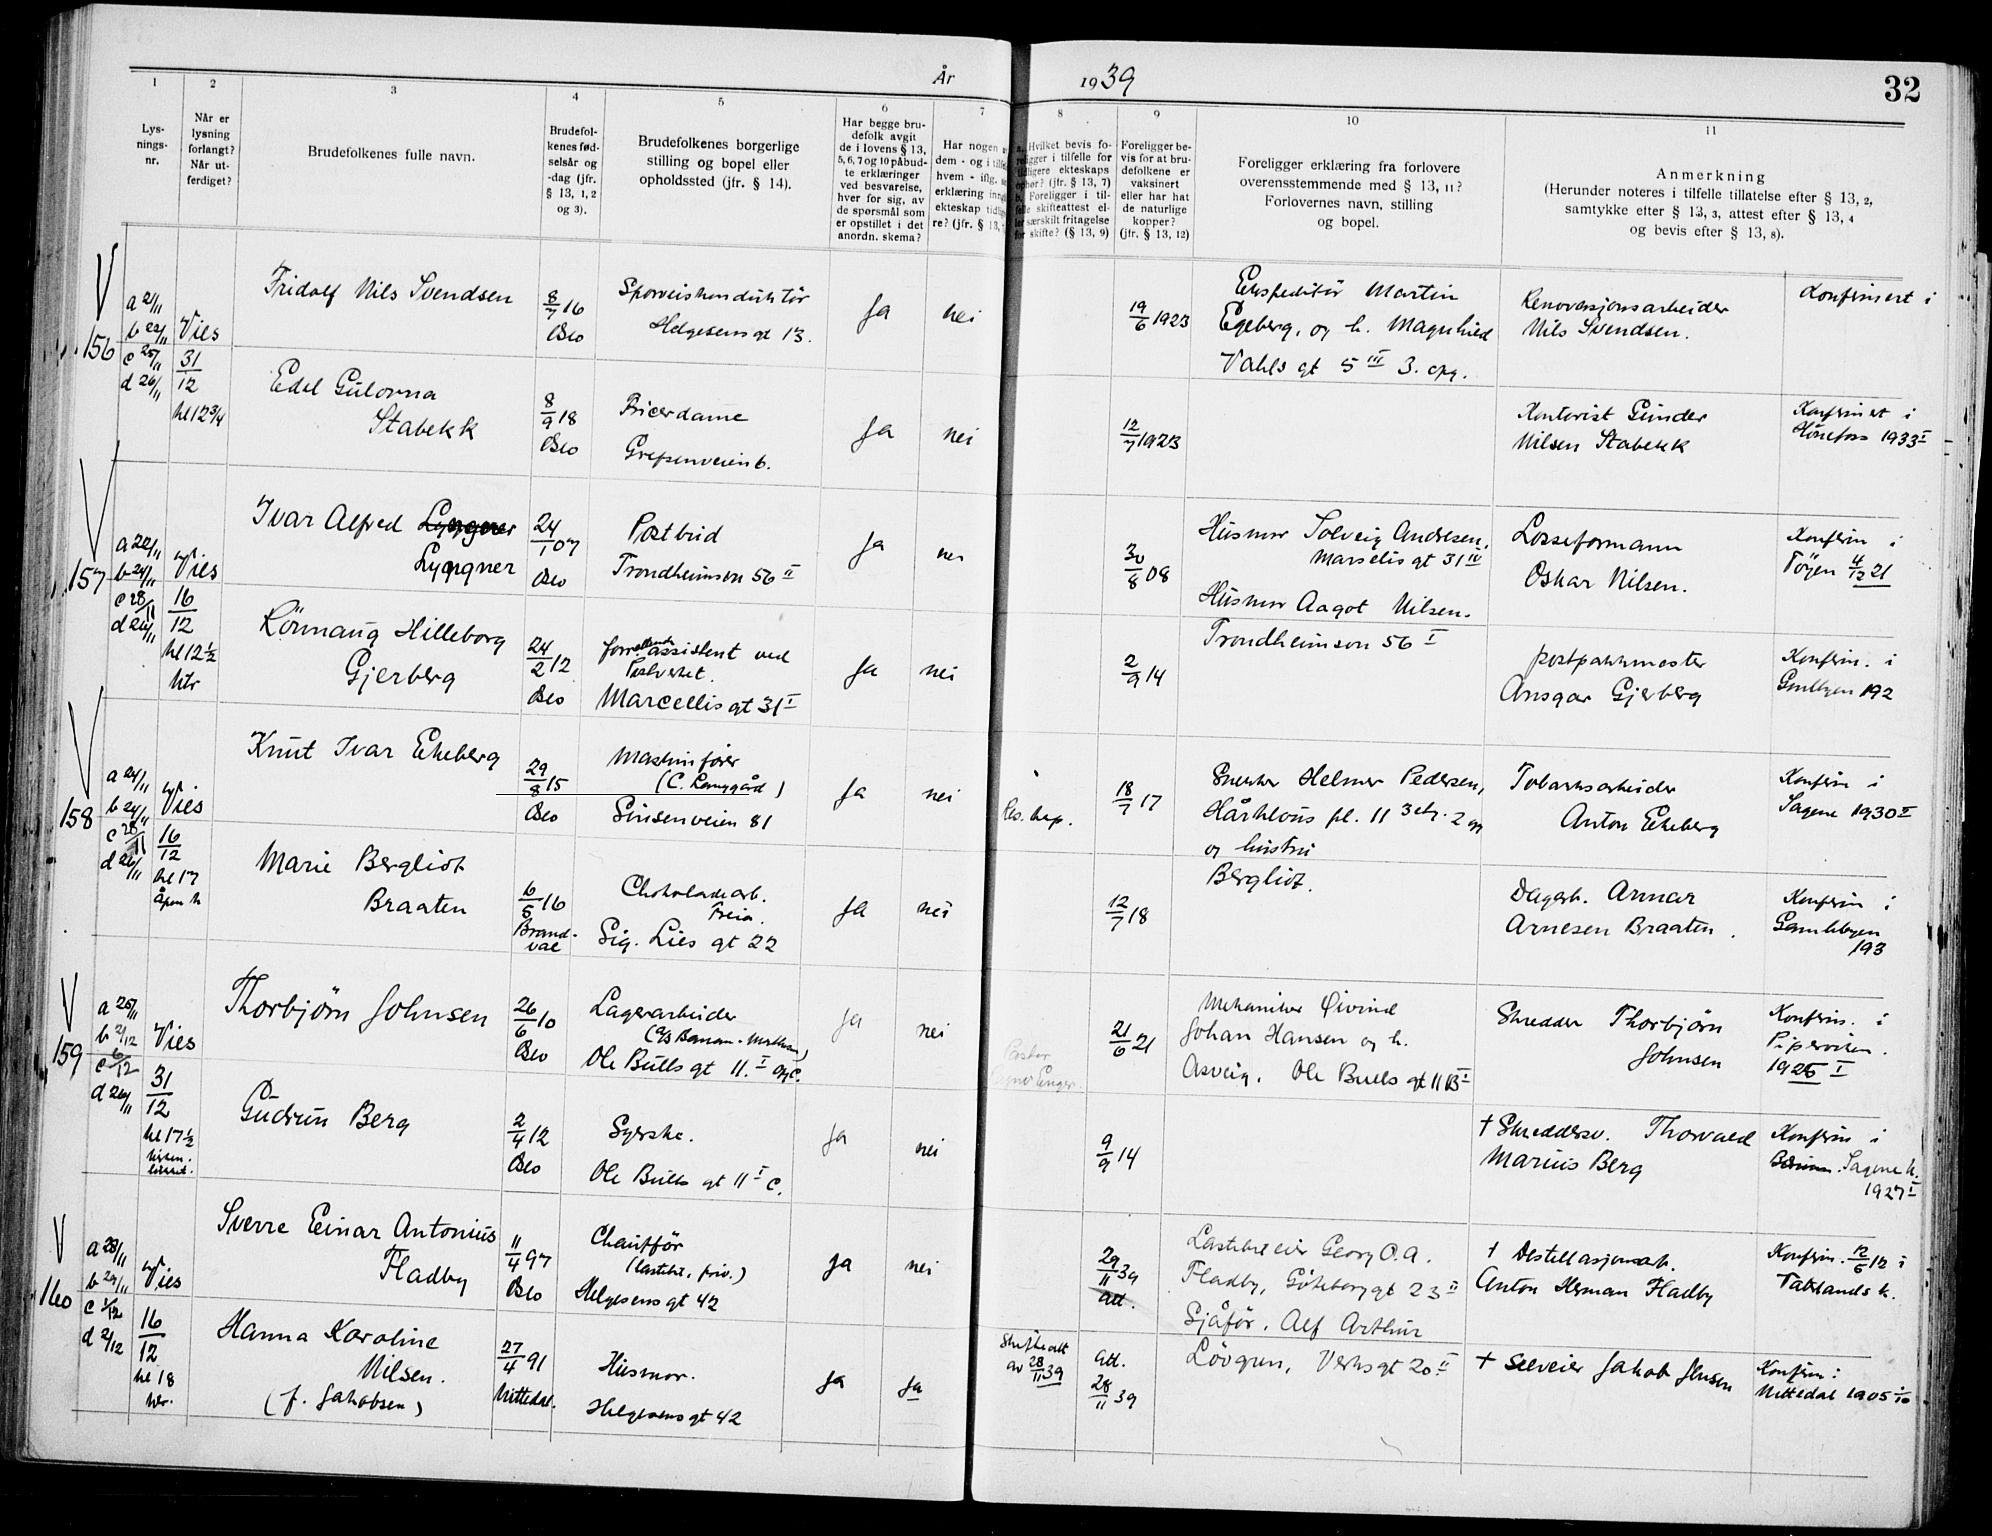 År 1939
32
1
2
3
4
5
6
7
8
9
10
11
Lys-
nings-
nr.
Når er
lysning
forlangt?
Når ut-
ferdiget?
Brudefolkenes fulle navn.
Brudefol-
kenes fød-
selsår og
-dag (jfr.
§ 13, 1, 2
og 3).
Brudefolkenes borgerlige
stilling og bopel eller
opholdssted (jfr. § 14).
Har begge bru-
defolk avgit
de i lovens § 13,
5, 6, 7 og 10 påbud-
te erklæringer
ved besvarelse,
hver for sig, av
de spørsmål som
er opstillet i det
anordn. skema?
Har nogen
dem - og i
hvem - iflg.
erklæring
ekteskap
re? (jfr. § 13,
a. Hvilket bevis fo-
religger i tilfelle for
tidligere ekteskaps
ophør? (jfr. § 13, 7)
b. Foreligger i til-
felle skifteattest el-
ler særskilt fritagelse
for skifte? (§ 13, 9)
Foreligger be-
vis for at bru-
defolkene er
vaksinert
eller har hat
de naturlige
kopper?
(jfr. § 13, 12)
Foreligger erklæring fra forlovere
overensstemmende med § 13, 11?
Forlovernes navn, stilling
og bopel.
Anmerkning
(Herunder noteres i tilfelle tillatelse efter § 13, 2,
samtykke efter § 13, 3, attest efter § 13, 4
og bevis efter § 13, 8).
156
a 21/11
b 22/11
c 25/11
d 26/11
Vies
31/12
kl 12 3/4
Fridolf Nils Svendsen
8/7 16
Oslo
Sporveiskonduktør
Helgesensgt 13.
Ja
nei
19/6 1923
Ekspeditør Martin
Egeberg, og h. Magnhild
Vahls gt 5 III 3. opg.
Renovasjonsarbeider
Nils Svendsen.
Konfirmert i
Edel Gulovna
Stabekk
8/9 18
Oslo
Fricerdame
Grefsenveien 6.
Ja
nei
12/7 1923
Kontorist Gunder
Nilsen Stabekk
Konfirmert i
Hønefoss 1933 I
157
a 22/11
b 24/11
c 28/11
d 26/11
Vies
16/12
kl 12 1/2
Ivar Alfred
Lyngner
24/1 07
Oslo
Postbud
Trondheimsvn 56 II
Ja
nei
30/8 08
Husmor Solveig Andresen.
Marselis gt 31 IV
Husmor Aagot Nilsen.
Trondheimsvn 56 I
Losseformann
Oskar Nilsen.
Konfirm i
Tøyen 4/12 21
Rönnaug Hilleborg
Gjerberg
24/2 12
Oslo
assistent ved
Postverket.
Marcellis gt 31 I
Ja
nei
2/9 14
Postpakkmester
Ansgar Gjerberg
Konfirm. i
Gmlbyen 192
158
a 24/11
b 24/11
c 28/11
d 26/11
Vies
16/12
kl 17
Åpen k
Knut Ivar Ekeberg
29/8 15
Oslo
Maskinfører
Sinsenveien 81
Ja
nei
18/7 17
Snekker Helmer Pedersen,
Hårklous pl. 11 3 etg. 2 opg
og hustru
Bergliot.
Tobaksarbeider
Anton Ekeberg
Konfirm i
Sagene 1930 II
Marie Bergliot
Braaten
6/5 16
Brand-
val
Chokoladearb.
Freia.
Sig. Lies gt 22
Ja
nei
12/7 18
Dagarb. Armar
Arnesen Braaten.
Konfirm i
Gamlebyen
193
159
a 25/11
b 2/12
c 6/12
d 26/11
Vies
31/12
kl 17 1/2
Thorbjørn Johnsen
26/6 10
Oslo
Lagerarbeider
(A/S Banan-Matthiesen)
Ole Bulls gt 11. I opg C.
Ja
nei
Pastor
Enger.
21/6 21
Mekaniker Øivind
Johan Hansen og h.
Asveig. Ole Bulls gt 11 B I
Skredder Thorbjørn
Johnsen
Konfirm. i
Piperviken.
1925 I
Gudrun Berg
2/4 12
Oslo
Syerske.
Ole Bulls gt 11 I C.
Ja
nei
9/9 14
† Skreddersv. Thorvald
Marius Berg
Konfirm i
Sagene k.
1927 I
160
a 28/11
b 29/11
c 1/12
d 2/12
Vies
16/12
kl 18
Sverre Einar Antonius
Fladby
11/4 97
Oslo
Chauffør
(lastebil, priv.)
Helgesens gt 42
Ja
nei
29/11 39
att.
Lastebileier Georg O. A.
Fladby, Göteborg gt 23 II
Sjåför. Alf Arthur
Lövgren, Verksgt 20 II
† Destillasjonsarb.
Anton Herman Fladby
Konfirm. 12/5 12 i
Vaterlands k.
Hanna Karoline
Nilsen.
(f. Jakobsen)
27/4 91
Nittedal.
Husmor.
Helgesens gt 42
Ja
Ja
Skifteatt
av 28/11 39
att.
28/11 39
† Selveier Jakob Jensen
Konfirm i
Nittedal 1905 1/10